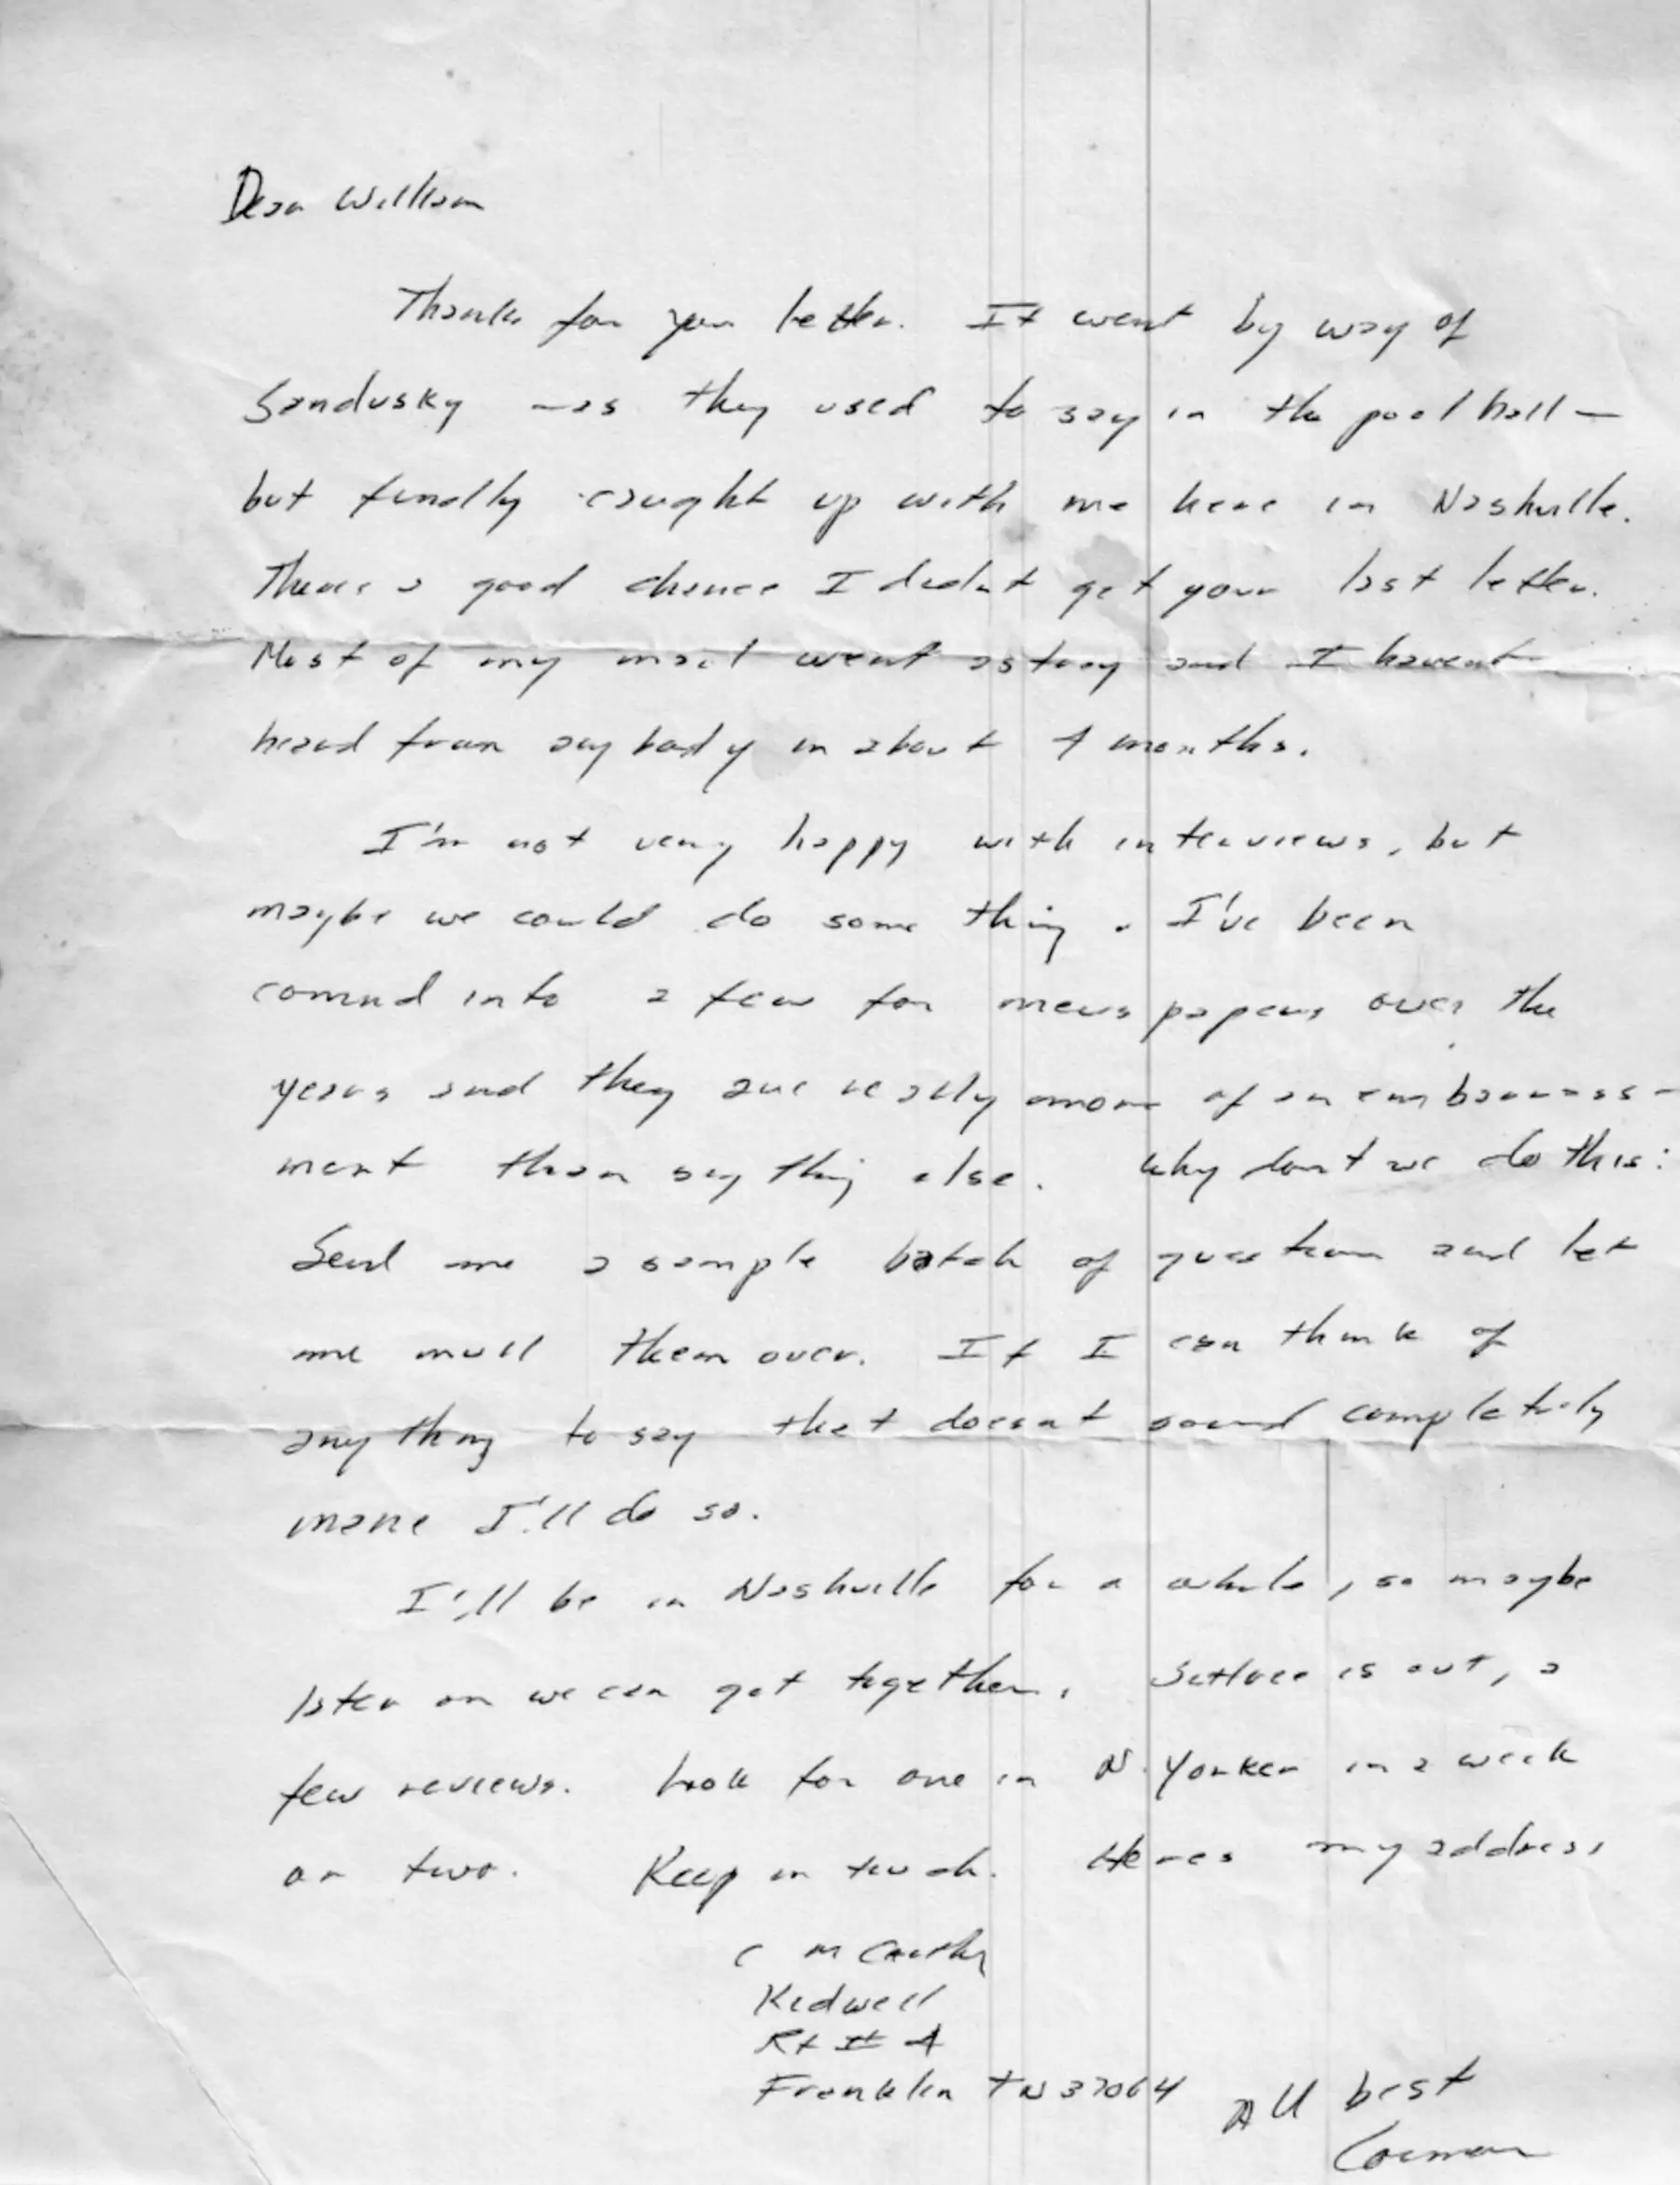 Dear William
Thanks for your letter. It went by way of
Sandusky – as they used to say in the pool hall –
but finally caught up with me here in Nashville.
Theres a good chance I didnt get your last letter.
Most of my mail went astray and I havent
heard from anybody in about 4 months.
I'm not very happy with interviews, but
maybe we could do some thing. I've been
conned into a few for newspapers over the
years and they are really more of an embarrass-
ment than anything else. Why dont we do this:
Send me a sample batch of questions and let
me mull them over. If I can think of
anything to say that doesnt sound completely
inane I'll do so.
I'll be in Nashville for a while, so maybe
later on we can get together. Suttree is out, a
few reviews. Look for one in N. Yorker in a week
or two. Keep in touch. Heres my address
C McCarthy
Kidwell
Rt # 4
Franklin TN 37064
All best
Cormac